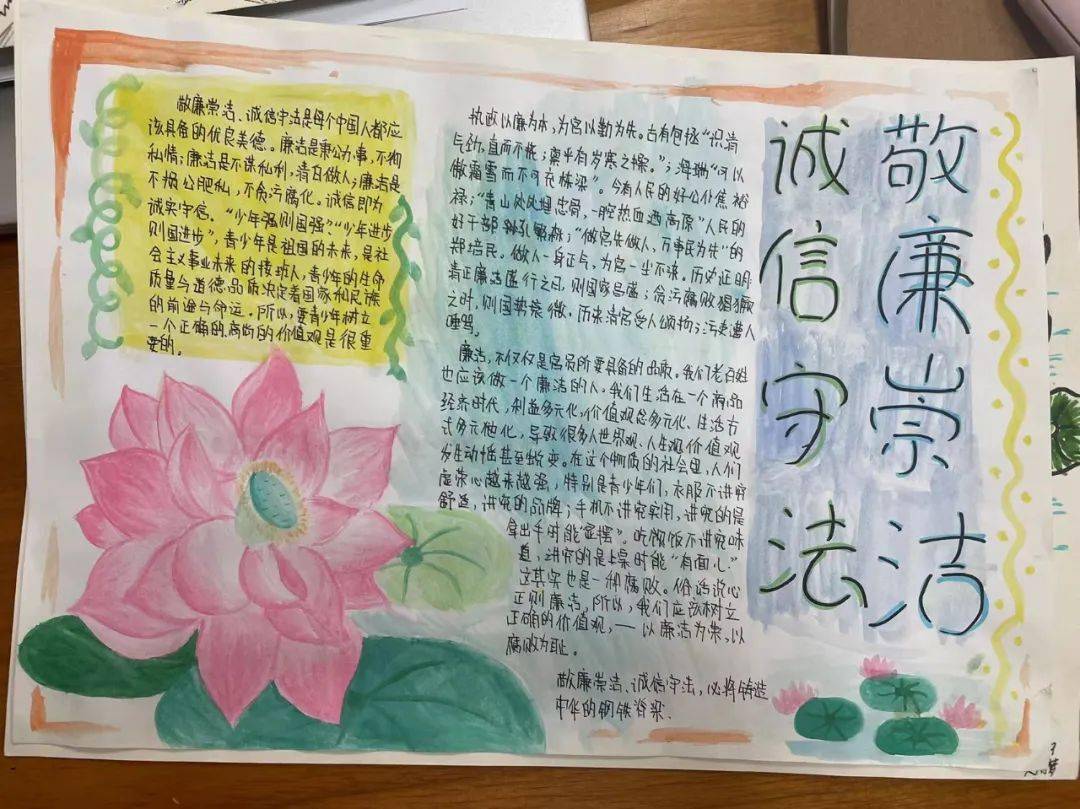 敬廉崇洁
诚信守法
敬廉崇洁、诚信守法是每个中国人都应
该具备的优良美德。廉洁是秉公办事,不徇
私情;廉洁是不谋私利,清白做人;廉洁是
不损公肥私,不贪污腐化。诚信即为
诚实守信。“少年强则国强”“少年进步
则国进步”,青少年是祖国的未来,是社
会主义事业未来的接班人,青少年的生命
质量与道德品质决定着国家和民族
的前途与命运。所以,要青少年树立
一个正确的高尚的价值观是很重
要的。
执政以廉为本,为官以勤为先。古有包拯“识肯
气劲,直而不挠;禀平有岁寒之操。”;海瑞“可以
傲霜雪而不可充栋梁”。今有人民的好公仆焦裕
禄;“青山处处埋忠骨,一腔热血洒高原”人民的
好干部孔繁森;“做官先做人,万事民为先”的
郑培民。做人一身正气,为官一尘不染,历史证明:
清正廉洁盛行之日,则国家昌盛;贪污腐败猖獗
之时,则国势衰微,历来清官受人颂扬;污吏遭人
唾骂。
廉洁,不仅仅是官员所要具备的品质。我们老百姓
也应该做一个廉洁的人。我们生活在一个商品
经济时代,利益多元化,价值观念多元化、生活方
式多元化,导致很多人世界观、人生观价值观
发生动摇甚至蜕变。在这个物质的社会里,人们
虚荣心越来越强,特别是青少年们,衣服不讲究
舒适,讲究的品牌;手机不讲究实用,讲究的是
拿出手时能“显摆”。吃饭不讲究味
道,讲究的是上桌时能“有面儿”
这其实也是一种腐败。俗话说心
正则廉洁,所以,我们应该树立
正确的价值观,——以廉洁为荣,以
腐败为耻。
敬廉崇洁、诚信守法,必将铸造
中华的钢铁脊梁.